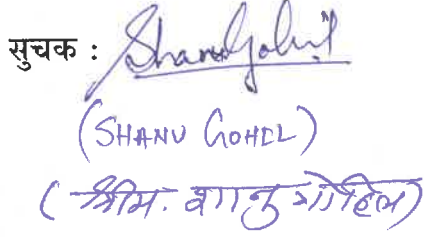 सुचक : Shanu Gohil
(SHANU GOHIL)
(श्रीम. शानु गोहिल)